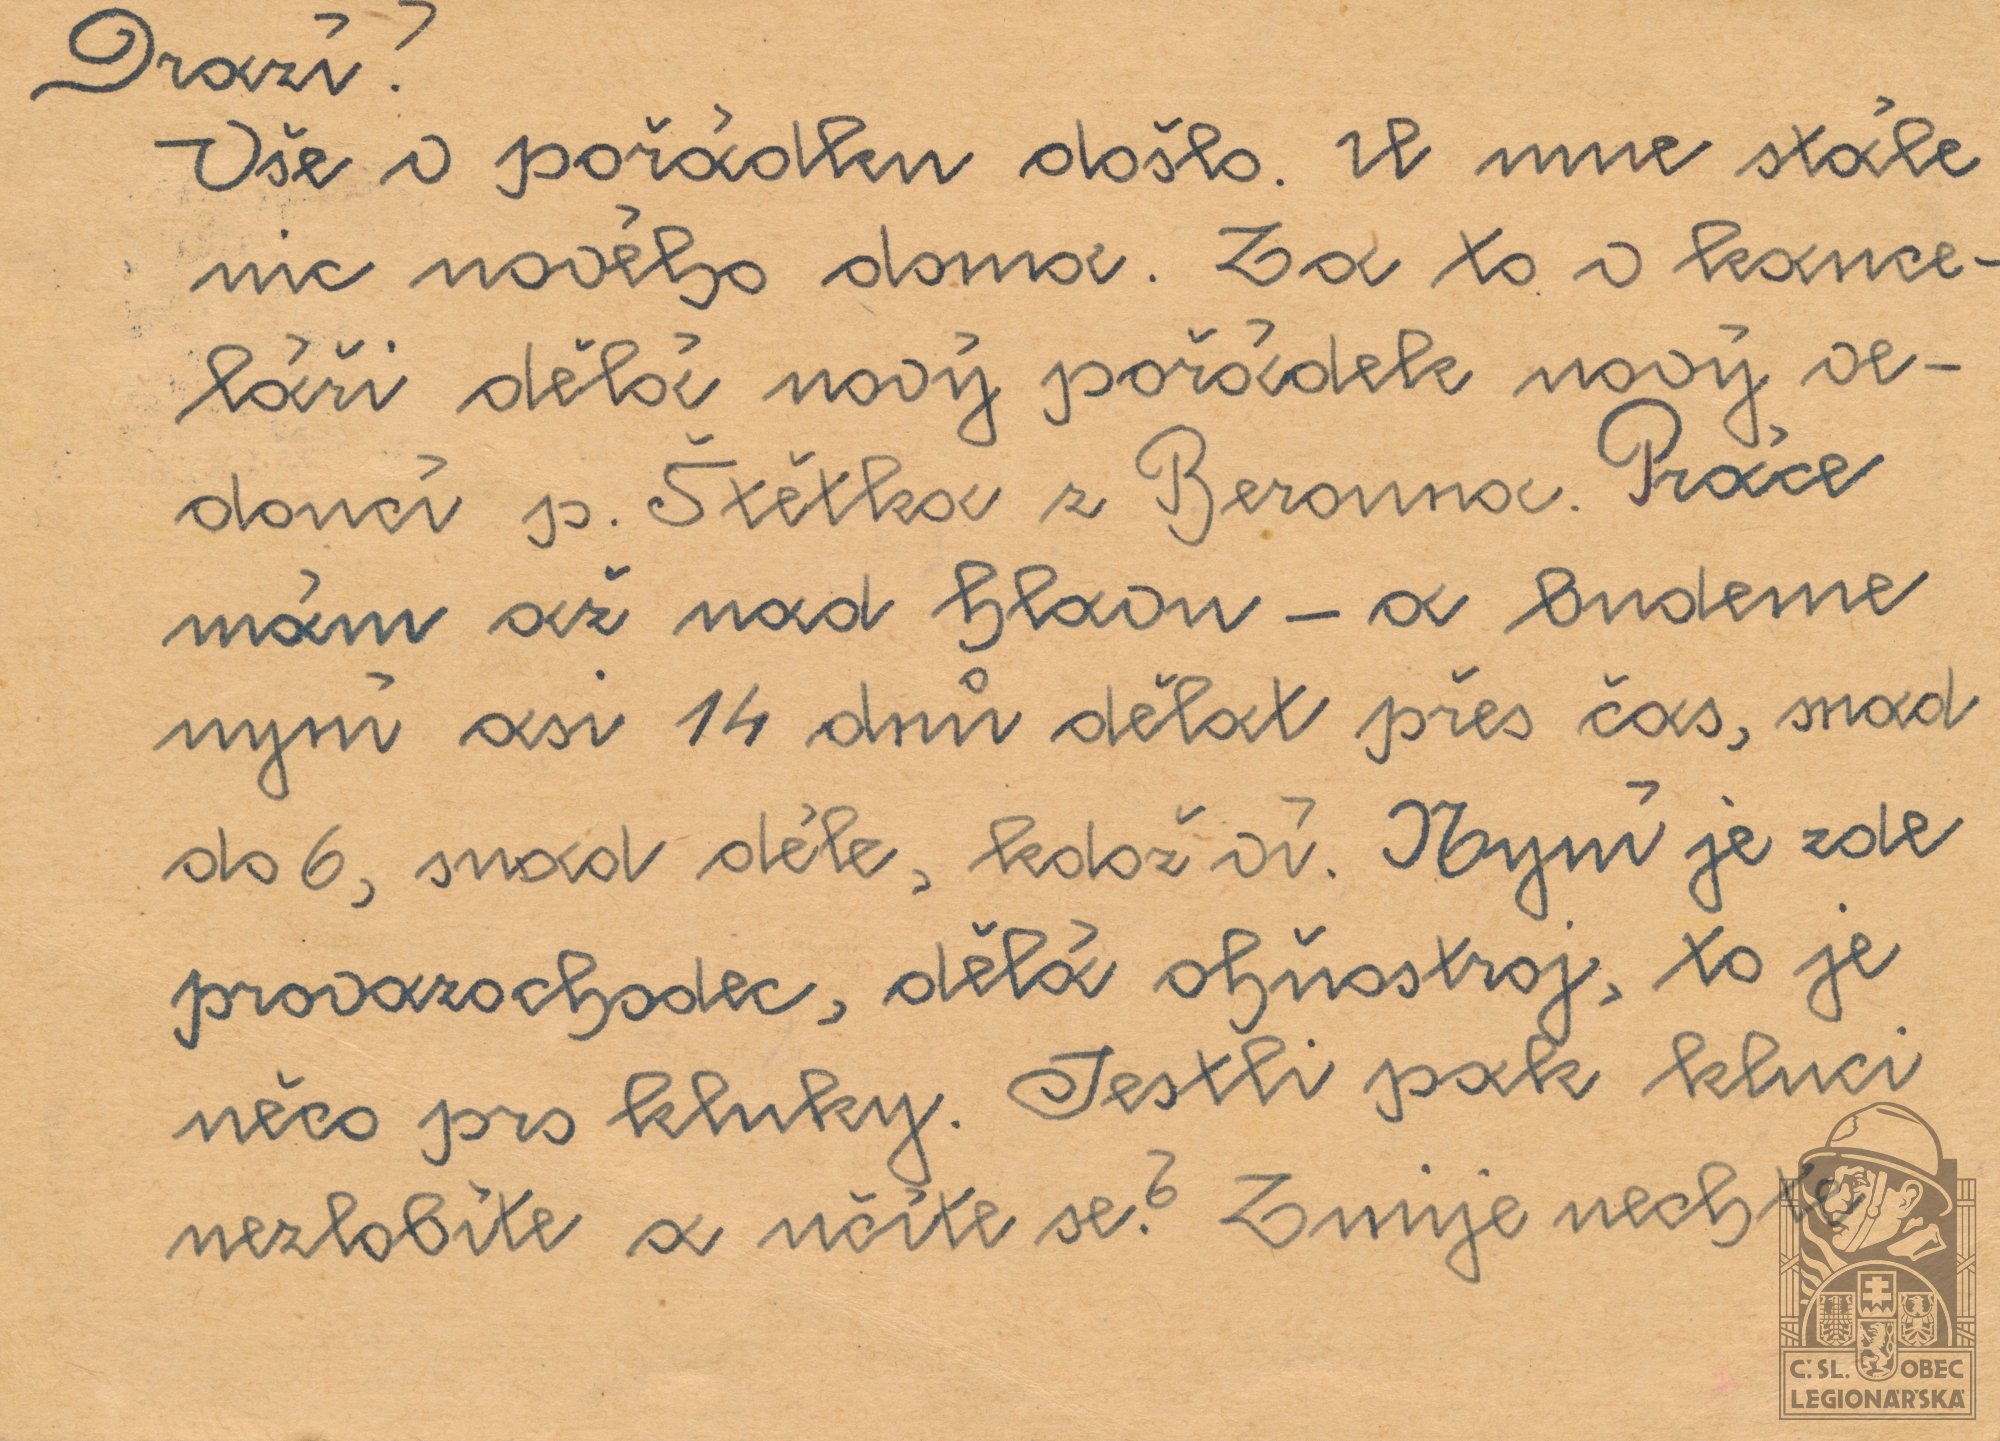 Drazí!
Vše v pořádku došlo. U mne stále
nic nového doma. Za to v kance-
láři dělá nový pořádek nový ve-
doucí p. Štětka z Berouna. Práce
mám až nad hlavu – a budeme
nyní asi 14 dnů dělat přes čas, snad
do 6, snad déle, kdož ví. Nyní je zde
provazochodec, dělá ohňostroj, to je
něco pro kluky. Jestli pak kluci
nezlobíte a učíte se? Zmije nechte
Č. SL. OBEC
LEGIONÁŘSKÁ